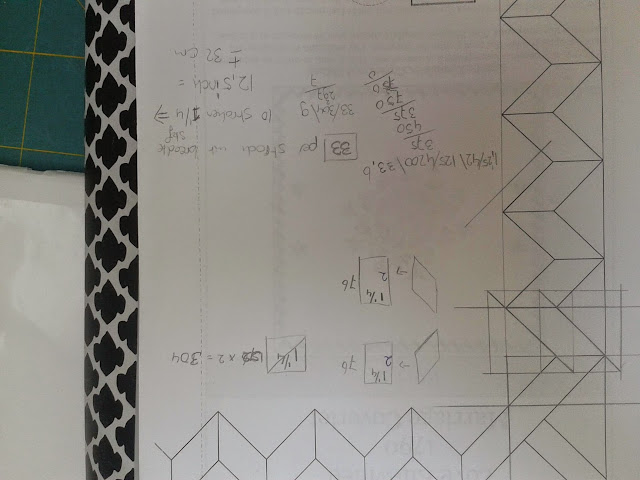 → 1¼ 76
2
1¼ × 2 = 304
→ 1¼ 76
2
1,25/42\ 125/4200\33,6
375
450
375
750
750
0
33 per strook uit breedte
stof
33/304\9
297
7
10 stroken 1¼ ⇒
12,5 inch =
± 32 cm